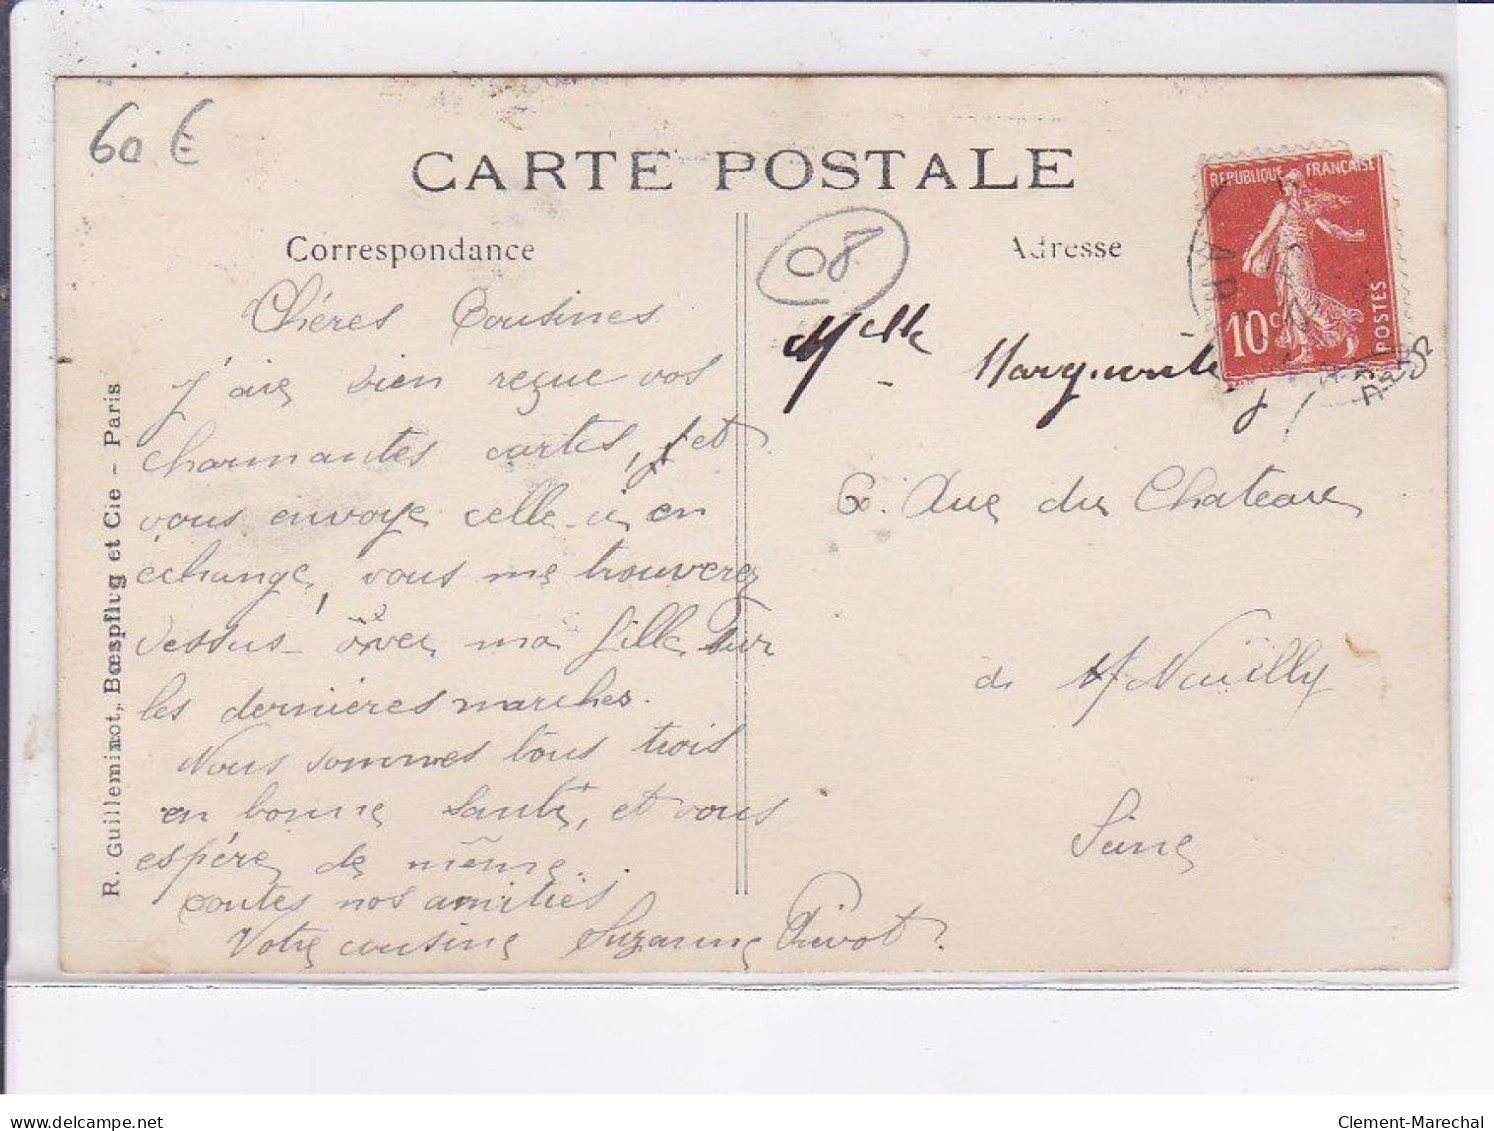 60 €
CARTE POSTALE
Correspondance
Adresse
08
RÉPUBLIQUE FRANÇAISE
10c
POSTES
Chéres Cousines
J'ais bien reçue vos
charmantes cartes, et
vous envoye celle-ci en
échange, vous me trouverez
dessus avec ma fille sur
les derniéres marches.
Nous sommes tous trois
en bonne santé, et vous
espére de même.
toutes nos amitiés
Votre cousine Suzanne Pivot.
Melle Marguerite
6. Rue du Chateau
de Nuïlly
Seine
R. Guilleminot, Bœspflug et Cie - Paris
delcampe.net
Clement-Marechal